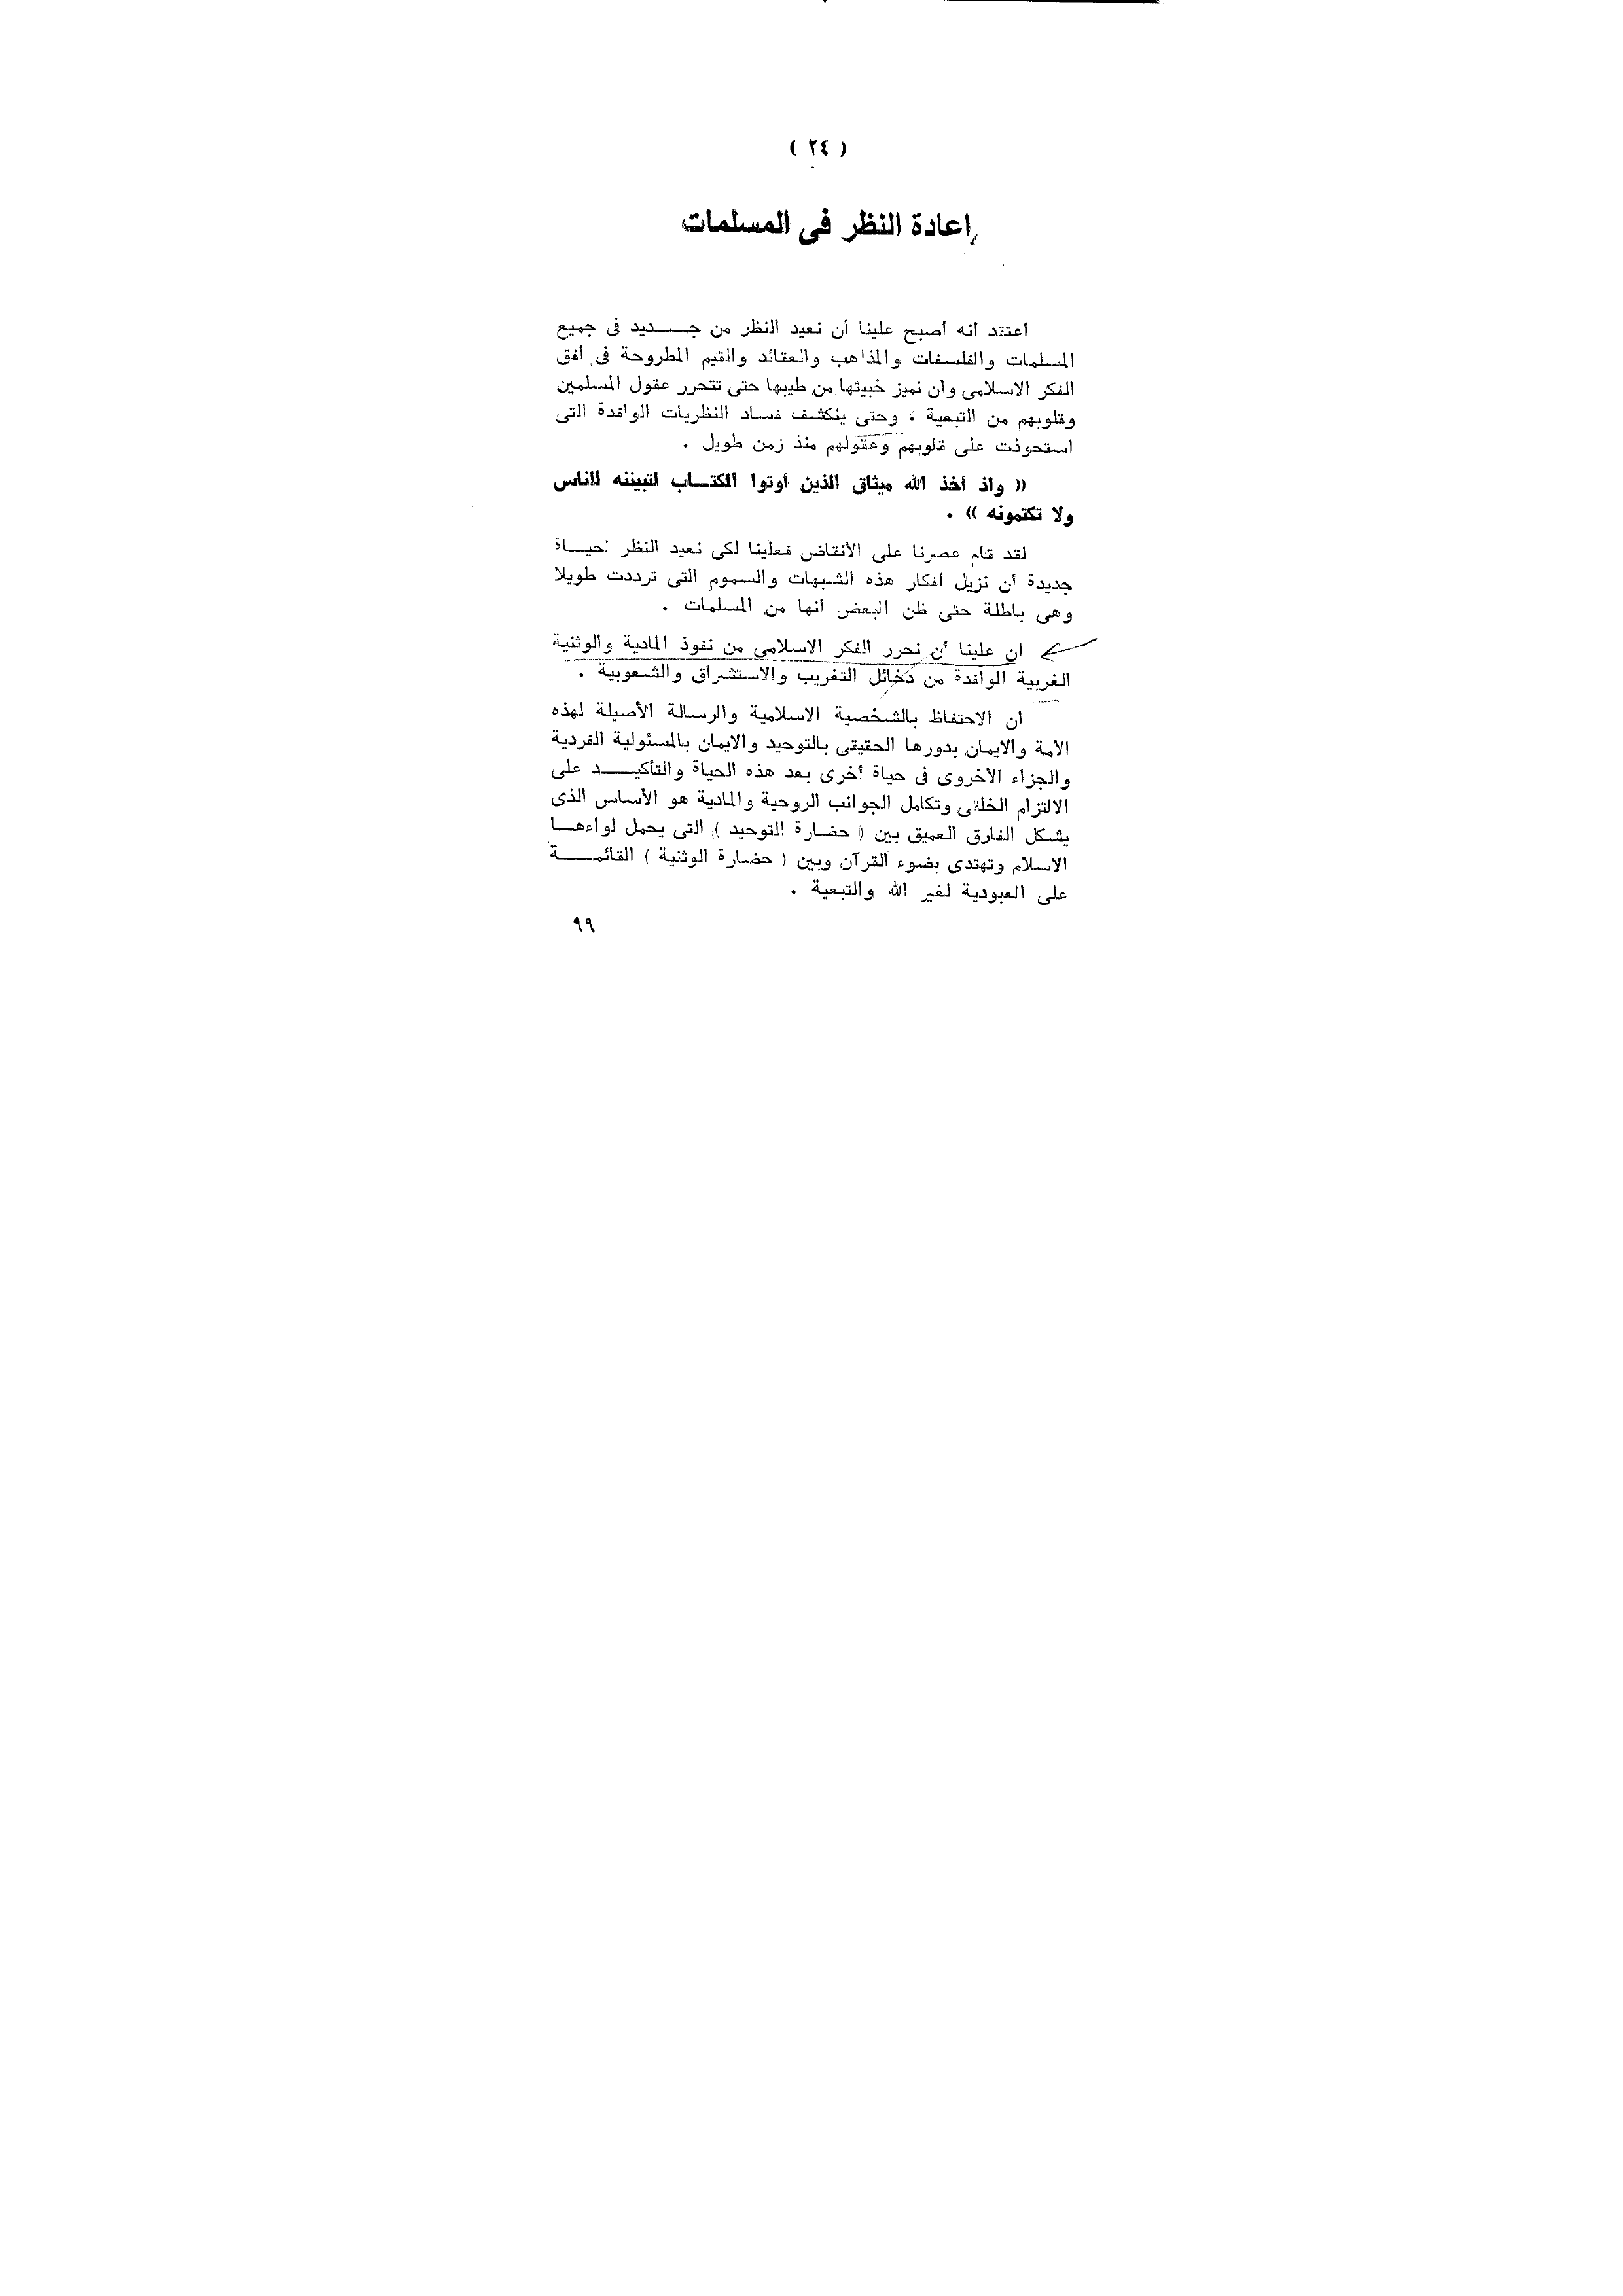 ( ٢٤ )
إعادة النظر فى المسلمات
أعتقد أنه أصبح علينا أن نعيد النظر من جـــديد فى جميع
المسلمات والفلسفات والمذاهب والعقائد والقيم المطروحة فى أفق
الفكر الاسلامى وان نميز خبيثها من طيبها حتى تتحرر عقول المسلمين
وقلوبهم من التبعية ، وحتى ينكشف فساد النظريات الوافدة التى
استحوذت على قلوبهم وعقولهم منذ زمن طويل .
(( واذ أخذ الله ميثاق الذين أوتوا الكتــاب لتبيننه للناس
ولا تكتمونه )) .
لقد قام عصرنا على الأنقاض فعلينا لكى نعيد النظر لحيــاة
جديدة أن نزيل أفكار هذه الشبهات والسموم التى ترددت طويلا
وهى باطلة حتى ظن البعض أنها من المسلمات .
ان علينا أن نحرر الفكر الاسلامى من نفوذ المادية والوثنية
الغربية الوافدة من دخائل التغريب والاستشراق والشعوبية .
ان الاحتفاظ بالشخصية الاسلامية والرسالة الأصيلة لهذه
الأمة والايمان بدورها الحقيقى بالتوحيد والايمان بالمسئولية الفردية
والجزاء الأخروى فى حياة أخرى بعد هذه الحياة والتأكيـــد على
الالتزام الخلقى وتكامل الجوانب الروحية والمادية هو الأساس الذى
يشكل الفارق العميق بين ( حضارة التوحيد ) التى يحمل لواءهــا
الاسلام وتهتدى بضوء القرآن وبين ( حضارة الوثنية ) القائمـــة
على العبودية لغير الله والتبعية .
٩٩